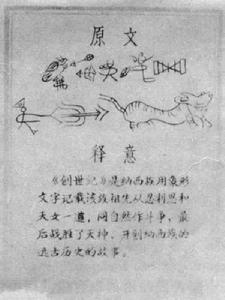 原文
释意
《创世记》是纳西族用象形
文字记载该族祖先从忍利恩和
天女一道,同自然作斗争,最
后战胜了天神,开创纳西族的
远古历史的故事。